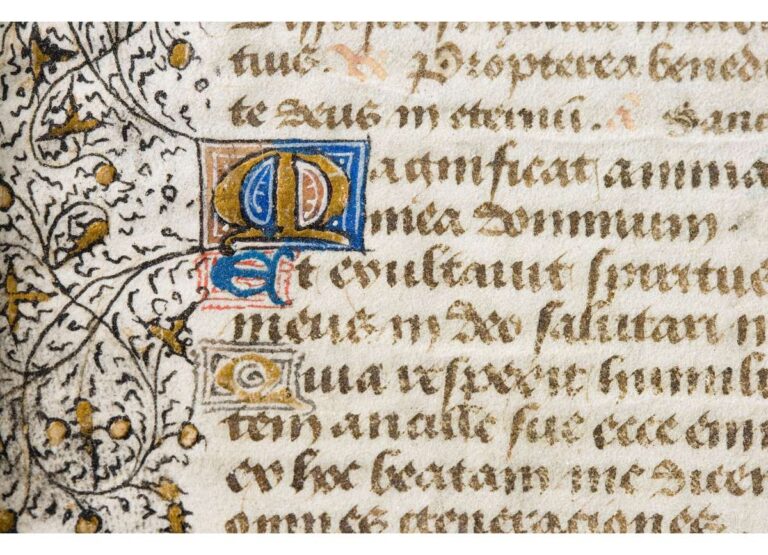 tuis. R Propterea bened
te deus in eternū. A Sanc
Magnificat anima
mea dominum.
Et exultauit spiritus
meus in deo salutari
Quia respexit humili
tem ancille sue ecce eni
ex hoc beatam me dicen
omnes generaciones